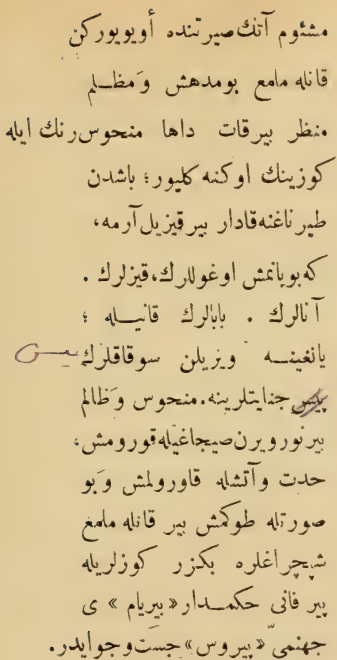 مشئوم آتك صيرتنده أويويوركن
قانله مامع بومدهش وَمظلم
منظر بيرقات داها منحوس رنك ايله
كوزينك اوكنه كليور؛ باشدن
طيرناغنه قادار بيرقيزيل آرمه،
كه بويانمش اوغوللرك، قيزلرك .
آنالرك . بابالرك قانيله ؛
يانغينه ويزيلن سوقاقلرك
پيس جنايتلرينه. منحوس وَظالم
بيرنورويرن صيجاغيله قورومش،
حدت وآتشله قاورولمش وَبو
صورتله طوكمش بير قانله مامع
شبچراغلره بكزر كوزلريله
پير فانى حكمدار «پريام» ى
جهنمى «پيروس» جست وجوايدر.